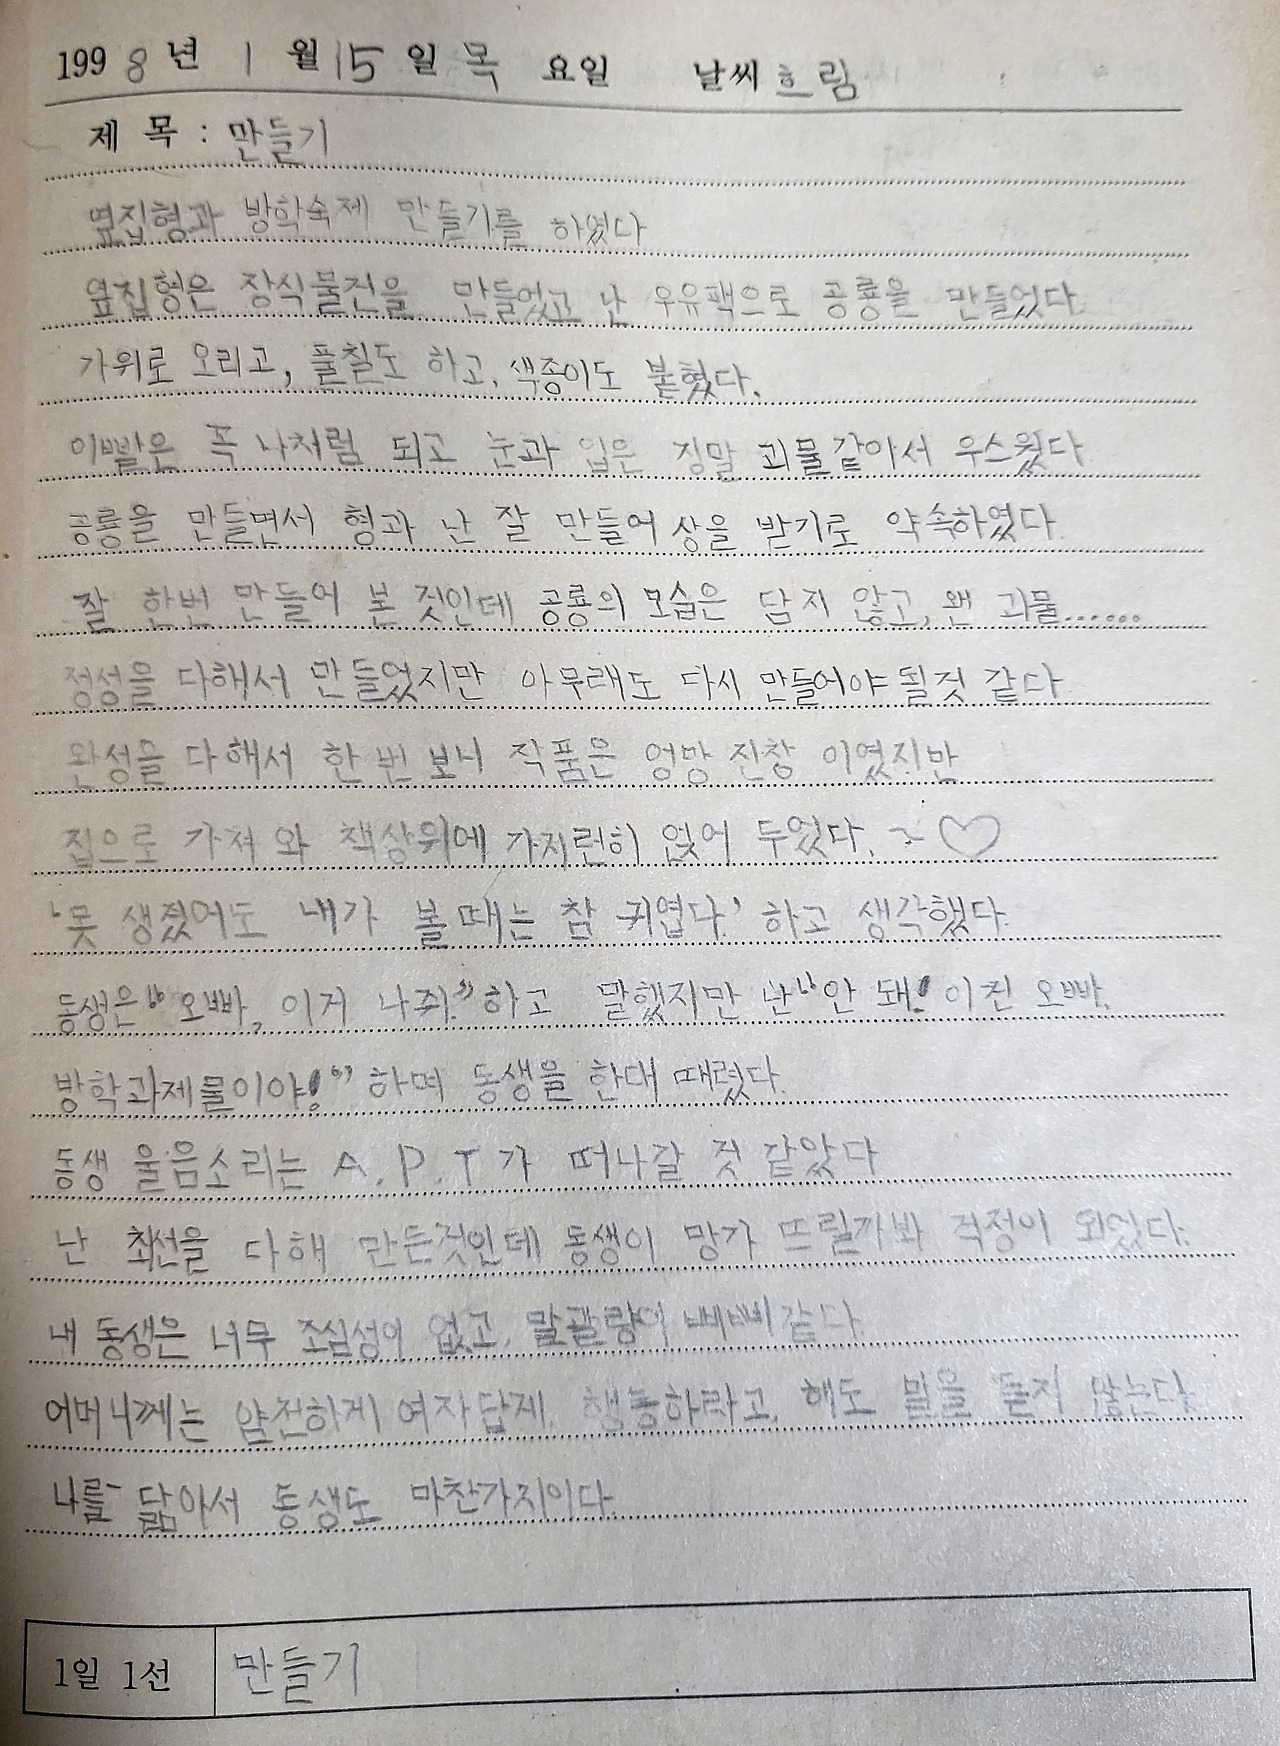 1998년 1월 15일 목요일 날씨 흐림
제 목 : 만들기
옆집형과 방학숙제 만들기를 하였다
옆집형은 장식물전을 만들었고 난 우유팩으로 공룡을 만들었다
가위로 오리고, 풀칠도 하고, 색종이도 붙혔다.
이빨은 꼭 나처럼 되고 눈과 입은 정말 괴물같아서 우스웠다
공룡을 만들면서 형과 난 잘 만들어 상을 받기로 약속하였다
잘 한번 만들어 본 것인데 공룡의 모습은 담지 않고, 왠 괴물......
정성을 다해서 만들었지만 아무래도 다시 만들어야 될것 같다
완성을 다해서 한번 보니 작품은 엉망 진창 이였지만
집으로 가져 와 책상위에 가지런히 얹어 두었다. ~♡
'못 생겼어도 내가 볼 때는 참 귀엽다.' 하고 생각했다.
동생은 "오빠, 이거 나줘." 하고 말했지만 난 "안 돼! 이건 오빠.
방학과제물이야!" 하며 동생을 한대 때렸다.
동생 울음소리는 A.P.T가 떠나갈 것 같았다
난 최선을 다해 만든것인데 동생이 망가 뜨릴까봐 걱정이 되었다.
내 동생은 너무 조심성이 없고, 말괄량이 삐삐같다.
어머니께는 얌전하게 여자답게. 행동하라고, 해도 말을 듣지 않는다
나를 닮아서 동생도 마찬가지이다.
1일 1선 만들기